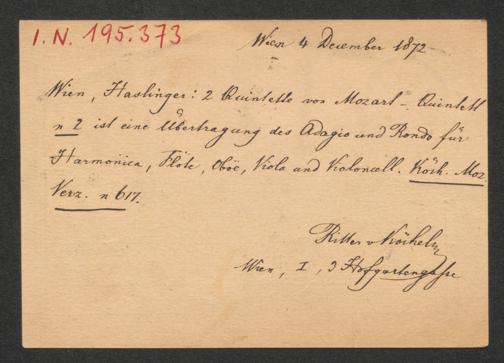 I. N. 195.373
Wien 4 December 1872
Wien, Haslinger: 2 Quintette von Mozart – Quintett
n 2 ist eine Übertragung des Adagio und Rondo für
Harmonica, Flöte, Oböe, Viola und Violoncell. Köch. Moz
Verz. n 617.
Ritter v Köchel
Wien, I, 3 Hofgartengasse